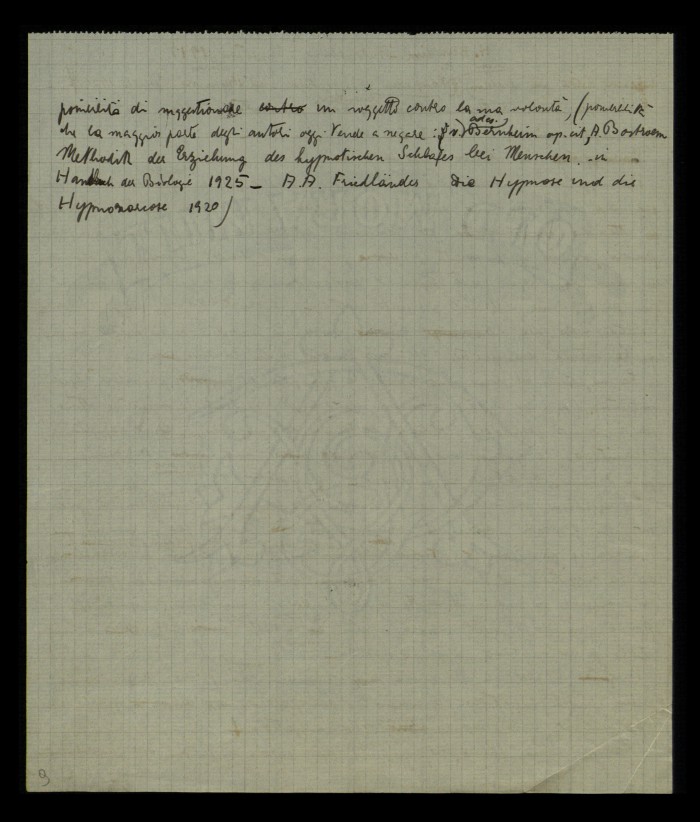 possibilità di suggestionare contro un soggetto contro la sua volontà, (possibilità
che la maggior parte degli autori oggi tende a negare: (v.) Bernheim op. cit, A. Bostroem
Methodik der Erziehung des hypnotischen Schlafes bei Menschen. in
Handbuch der Biologie 1925 – A.A. Friedländer Die Hypnose und die
Hypnonarcose 1920)
9